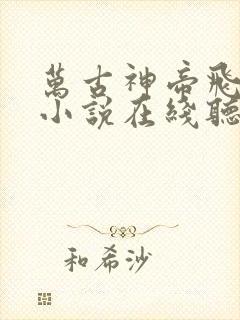 萬古神帝飛
小說在綫聽
和希沙